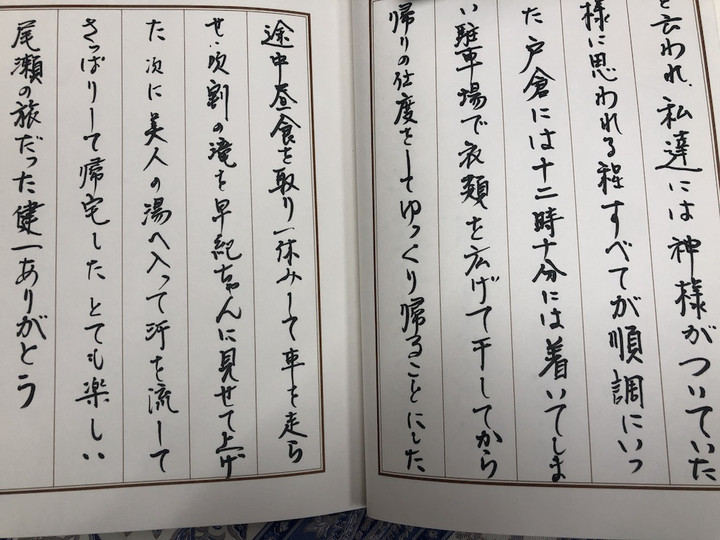 と云われ、私達には神様がついていた
様に思われる程すべてが順調にいっ
た 戸倉には十二時十分には着いてしま
い駐車場で衣類を広げて干してから
帰りの仕度をしてゆっくり帰ることにした
途中昼食を取り一休みして車を走ら
せ、吹割の滝を早紀ちゃんに見せて上げ
た 次に美人の湯へ入って汗を流して
さっぱりして帰宅した とても楽しい
尾瀬の旅だった 健一ありがとう